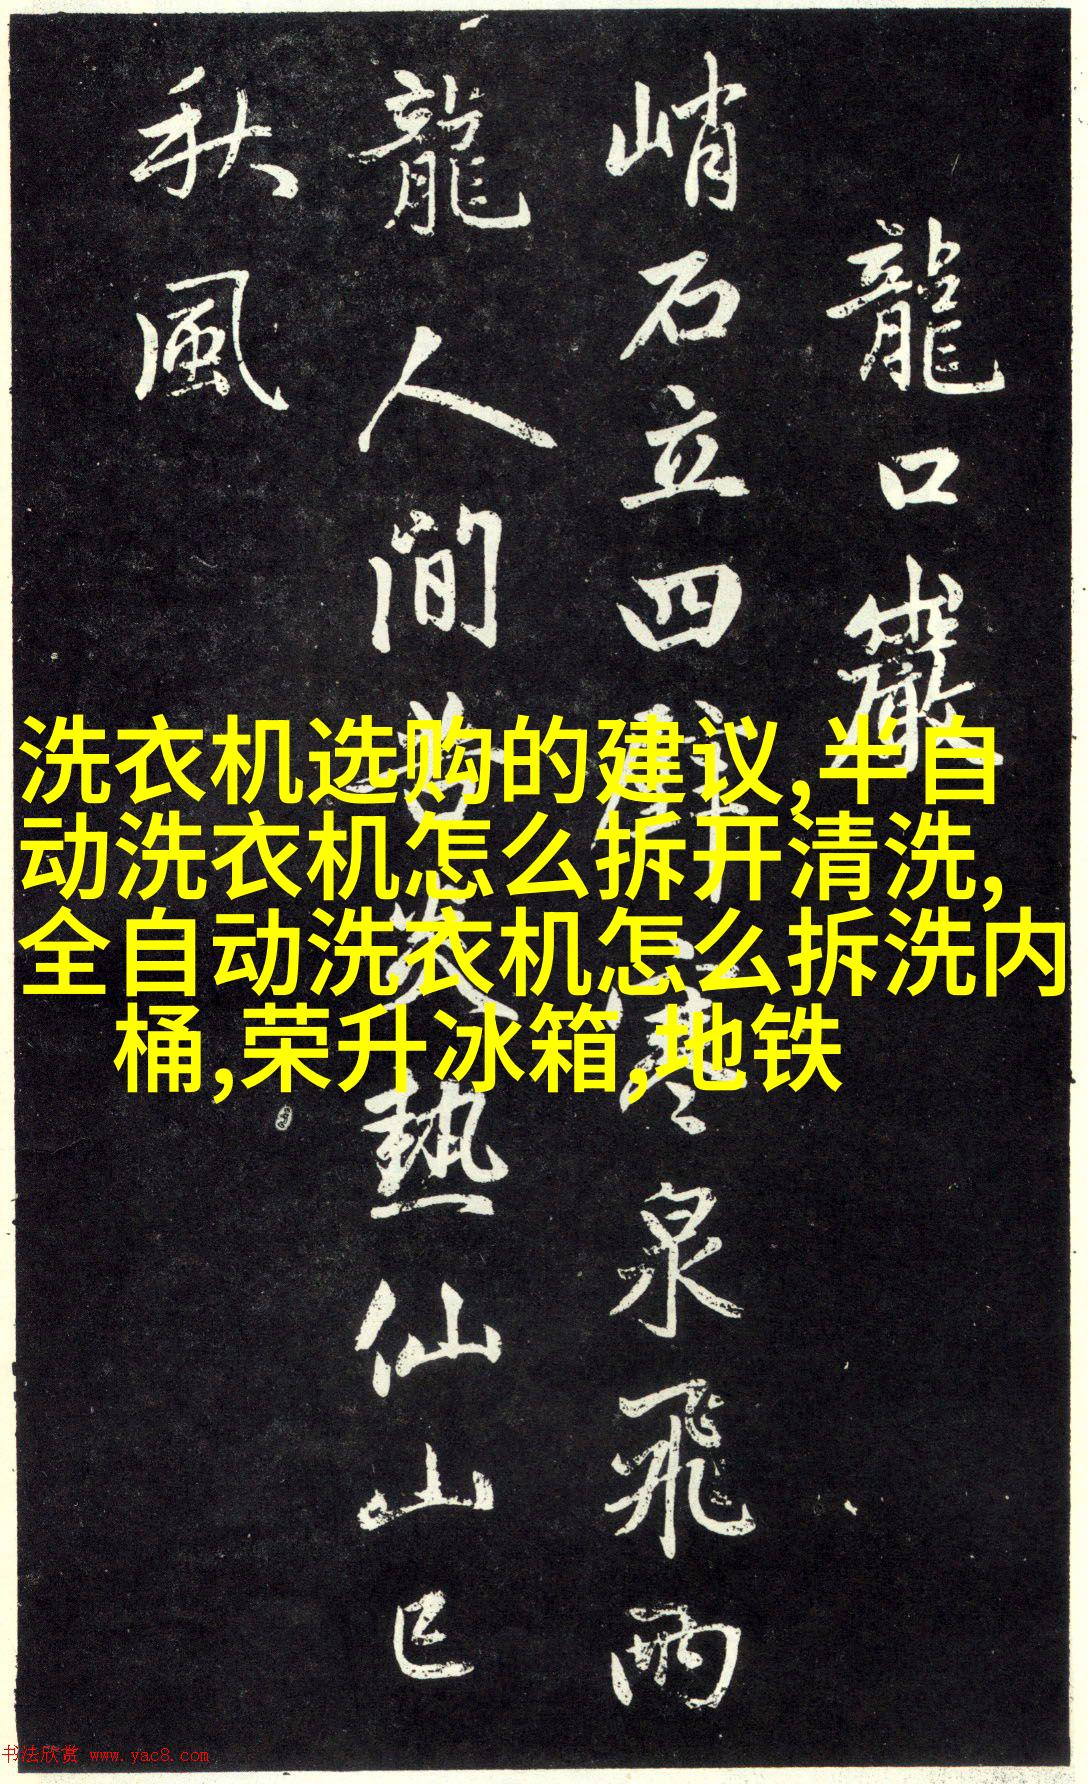 龍口巖
峭石立四壁寒泉飛兩
龍人間苦炎熱仙山已
秋風
洗衣机选购的建议,半自
动洗衣机怎么拆开清洗,
全自动洗衣机怎么拆洗内
桶,荣升冰箱,地铁
书法欣赏 www.yac8.com